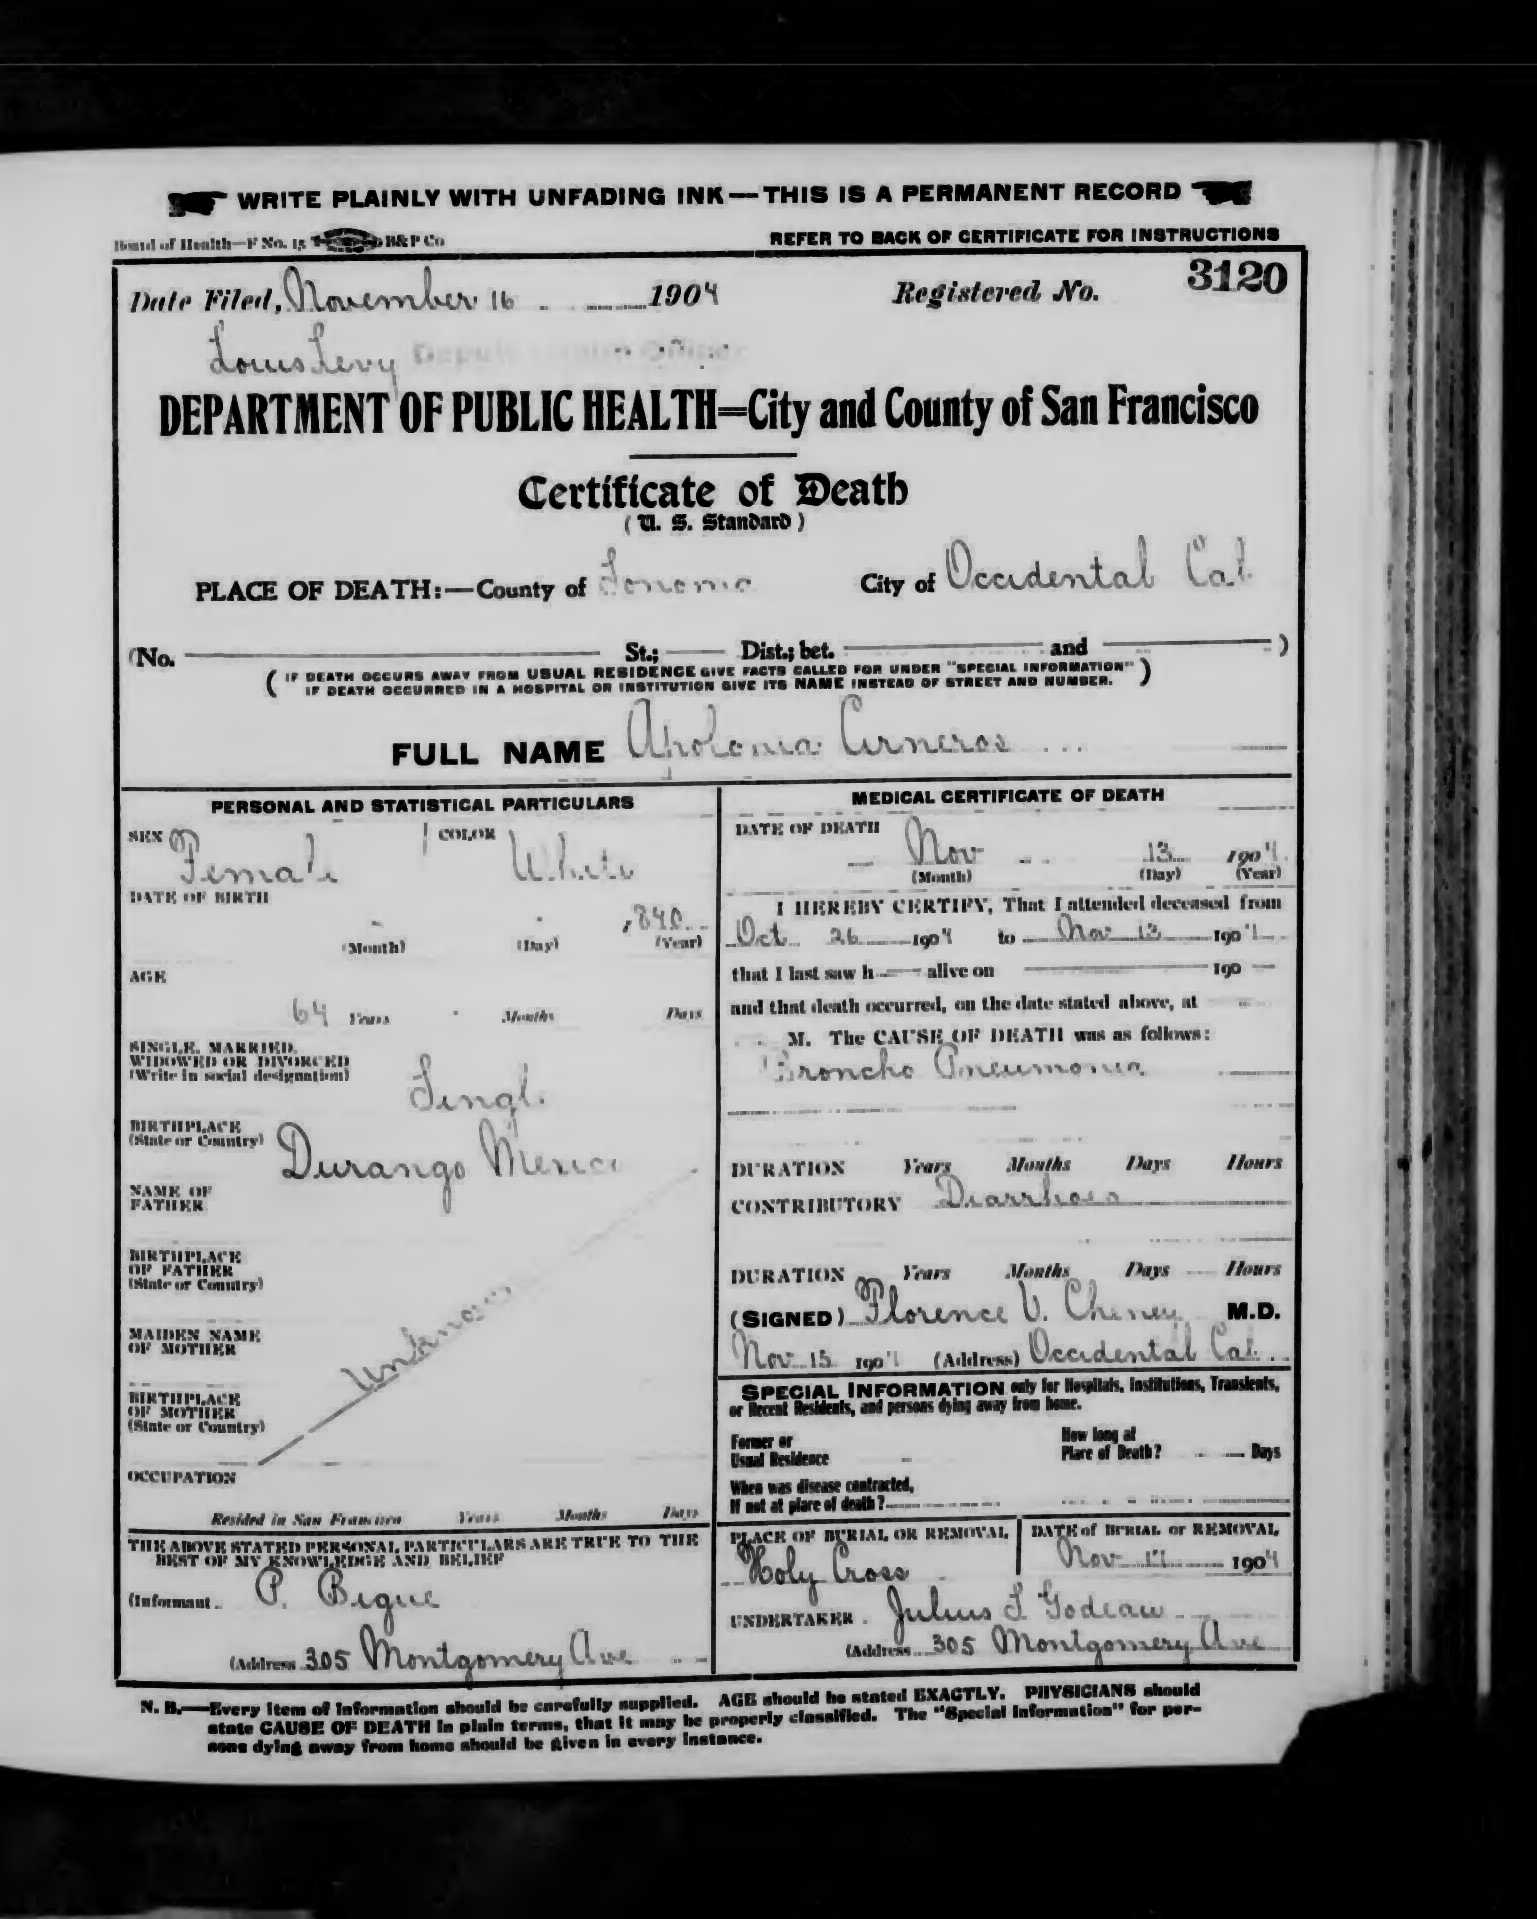 WRITE PLAINLY WITH UNFADING INK—THIS IS A PERMANENT RECORD
Board of Health—F No. 15 B&P Co
REFER TO BACK OF CERTIFICATE FOR INSTRUCTIONS
Date Filed, November 16 1904 Registered No. 3120
Louis Levy Deputy Health Officer
DEPARTMENT OF PUBLIC HEALTH=City and County of San Francisco
Certificate of Death
(U. S. Standard)
PLACE OF DEATH:—County of Sonoma City of Occidental Cal
(No. St.; Dist.; bet. and )
(IF DEATH OCCURS AWAY FROM USUAL RESIDENCE GIVE FACTS CALLED FOR UNDER "SPECIAL INFORMATION"
IF DEATH OCCURRED IN A HOSPITAL OR INSTITUTION GIVE ITS NAME INSTEAD OF STREET AND NUMBER.)
FULL NAME Apolonia Cisneros
PERSONAL AND STATISTICAL PARTICULARS
SEX Female COLOR White
DATE OF BIRTH
1840
(Month) (Day) (Year)
AGE
64 Years Months Days
SINGLE, MARRIED,
WIDOWED OR DIVORCED
(Write in social designation)
Single
BIRTHPLACE
(State or Country)
Durango Mexico
NAME OF
FATHER
BIRTHPLACE
OF FATHER
(State or Country)
Unknown
MAIDEN NAME
OF MOTHER
BIRTHPLACE
OF MOTHER
(State or Country)
OCCUPATION
Resided in San Francisco Years Months Days
THE ABOVE STATED PERSONAL PARTICULARS ARE TRUE TO THE
BEST OF MY KNOWLEDGE AND BELIEF
(Informant P. Bigue
(Address 305 Montgomery Ave
MEDICAL CERTIFICATE OF DEATH
DATE OF DEATH
Nov 13 1904
(Month) (Day) (Year)
I HEREBY CERTIFY, That I attended deceased from
Oct 26 1904 to Nov 13 1904
that I last saw h alive on 190
and that death occurred, on the date stated above, at
M. The CAUSE OF DEATH was as follows:
Broncho Pneumonia
DURATION Years Months Days Hours
CONTRIBUTORY Diarrhoea
DURATION Years Months Days Hours
(SIGNED) Florence V. Cheney M.D.
Nov 15 1904 (Address) Occidental Cal
SPECIAL INFORMATION only for Hospitals, Institutions, Transients,
or Recent Residents, and persons dying away from home.
Former or
Usual Residence
How long at
Place of Death? Days
When was disease contracted,
If not at place of death?
PLACE OF BURIAL OR REMOVAL
Holy Cross
DATE of BURIAL or REMOVAL
Nov 17 1904
UNDERTAKER Julius S Godeau
(Address 305 Montgomery Ave
N. B.—Every item of information should be carefully supplied. AGE should be stated EXACTLY. PHYSICIANS should
state CAUSE OF DEATH in plain terms, that it may be properly classified. The "Special Information" for per-
sons dying away from home should be given in every instance.